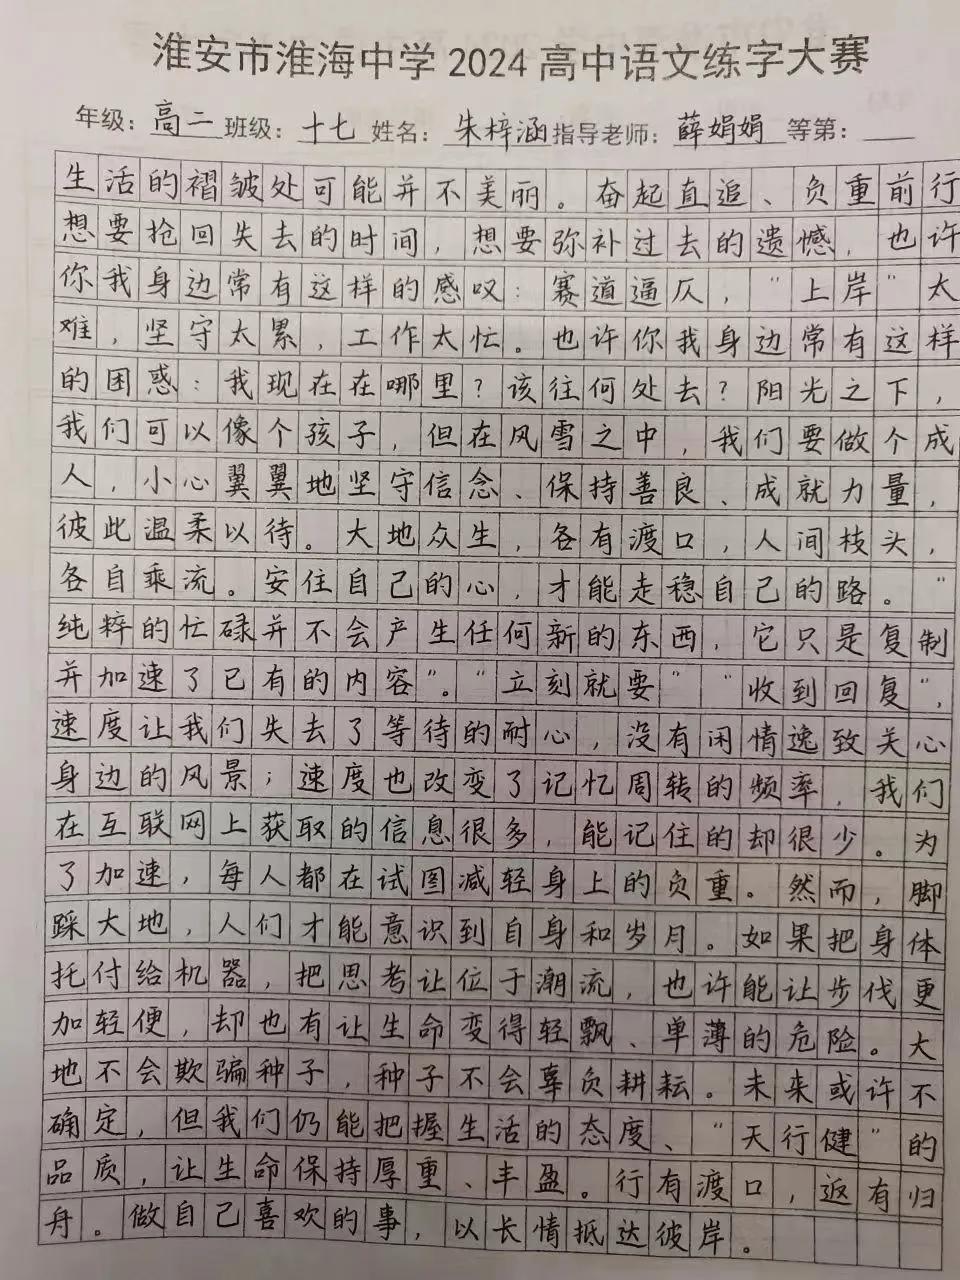 淮安市淮海中学2024高中语文练字大赛
年级：高二 班级：十七 姓名：朱梓涵 指导老师：薛娟娟 等第：
生活的褶皱处可能并不美丽。奋起直追、负重前行
想要抢回失去的时间，想要弥补过去的遗憾，也许
你我身边常有这样的感叹：赛道逼仄，“上岸”太
难，坚守太累，工作太忙。也许你我身边常有这样
的困惑：我现在在哪里？该往何处去？阳光之下，
我们可以像个孩子，但在风雪之中，我们要做个成
人，小心翼翼地坚守信念、保持善良、成就力量，
彼此温柔以待。大地众生，各有渡口，人间枝头，
各自乘流。安住自己的心，才能走稳自己的路。“
纯粹的忙碌并不会产生任何新的东西，它只是复制
并加速了已有的内容”。“立刻就要”“收到回复”，
速度让我们失去了等待的耐心，没有闲情逸致关心
身边的风景；速度也改变了记忆周转的频率，我们
在互联网上获取的信息很多，能记住的却很少。为
了加速，每人都在试图减轻身上的负重。然而，脚
踩大地，人们才能意识到自身和岁月。如果把身体
托付给机器，把思考让位于潮流，也许能让步伐更
加轻便，却也有让生命变得轻飘、单薄的危险。大
地不会欺骗种子，种子不会辜负耕耘。未来或许不
确定，但我们仍能把握生活的态度、“天行健”的
品质，让生命保持厚重、丰盈。行有渡口，返有归
舟。做自己喜欢的事，以长情抵达彼岸。